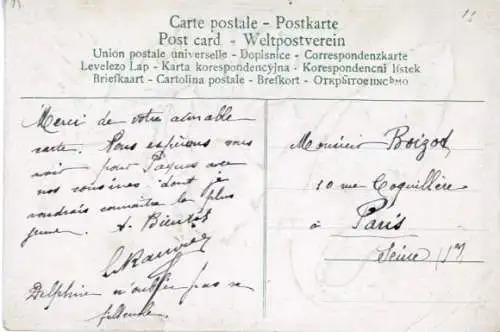 Carte postale – Postkarte
Post card – Weltpostverein
Union postale universelle – Dopisnice – Correspondenzkarte
Levelezo Lap – Karta korespondencyjna – Korespondencni lístek
Briefkaart – Cartolina postale – Brefkort – Открытое письмо
Merci de votre adorable
carte. Nous espérons vous
voir pour Pâques avec
nos cousines dont je
voudrais connaître la plus
jeune. A Bientôt
Delphine n'oublie pas sa
Monsieur Boizot
10 rue Coquillère
à Paris
Seine